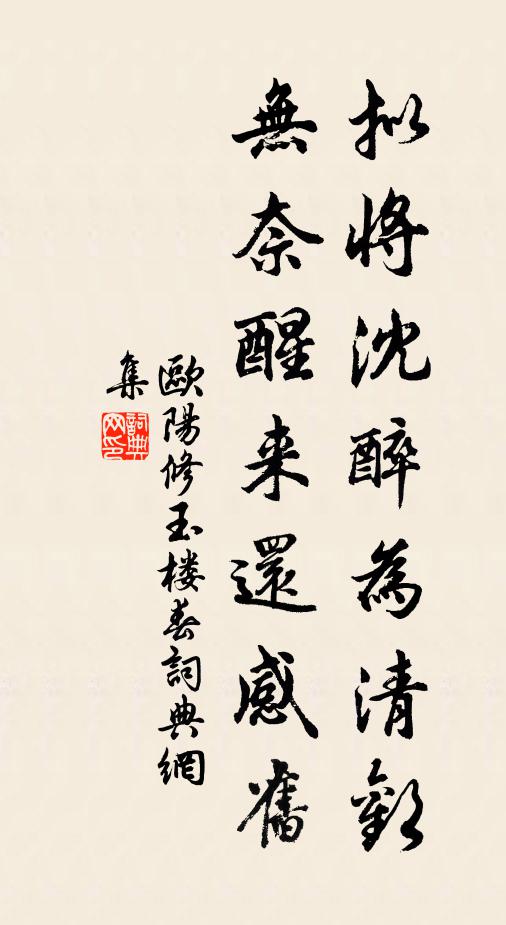 拟将沈醉為清歡
無奈醒来還感舊
歐陽修玉楼春詞典網
集
詞典
网印